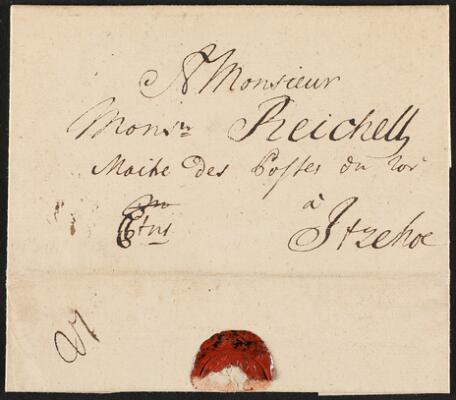 A Monsieur
Monsr Reichell
Maitre des Postes du roi
à
Itzehoe